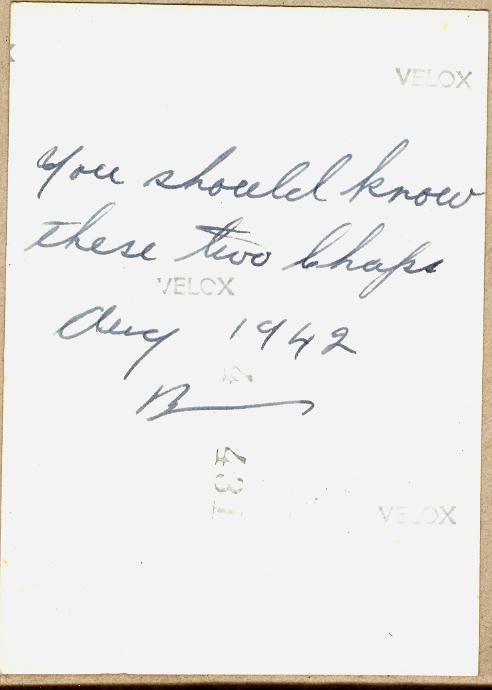 VELOX
You should know
these two Chaps
VELOX
Aug 1942
431
VELOX